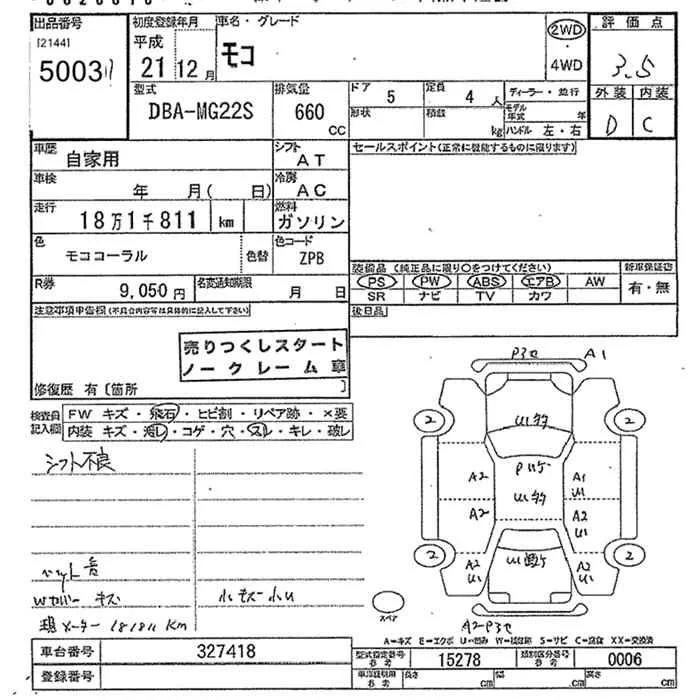 出品番号
[2144]
5003
初度登録年月
平成
21年 12月
車名・グレード
モコ
2WD
・
4WD
評価点
3.5
外装 内装
D C
型式
DBA-MG22S
排気量
660
CC
ドア 5
定員 4 人
形状
積数 kg
ディーラー・並行
モデル年式 年
ハンドル 左・右
車歴 自家用
シフト AT
セールスポイント(正常に機能するものに限ります)
車検 年 月( 日)
冷房 AC
走行 18万1千811 km
燃料 ガソリン
色 モココーラル
色替
色コード ZPB
装備品 (純正品に限り○をつけてください)
新車保証書
PS PW ABS エアB AW
有・無
SR ナビ TV カワ
R券 9,050円
名変通知期限 月 日
後日品
注意事項申告欄(不具合内容等は具体的に記入して下さい)
売りつくしスタート
ノークレーム車
修復歴 有〔箇所 〕
検査員
記入欄
FW キズ・飛石・ヒビ割・リペア跡・×要
内装 キズ・汚レ・コゲ・穴・スレ・キレ・破レ
シフト不良
Wカバー キズ
小キズ小U
現メーター 181811 Km
A1
2
2
A2
A1
U1
A2
A2
U1
2
2
A2
U1
A2
U1
スペア
A=キズ E=エクボ U=凹み W=補修跡 S=サビ C=腐食 XX=交換済
車台番号 327418
型式指定番号
参考
15278
類別区分番号
参考
0006
登録番号
車洋証明用
参考
長さ cm 幅 cm 高さ cm